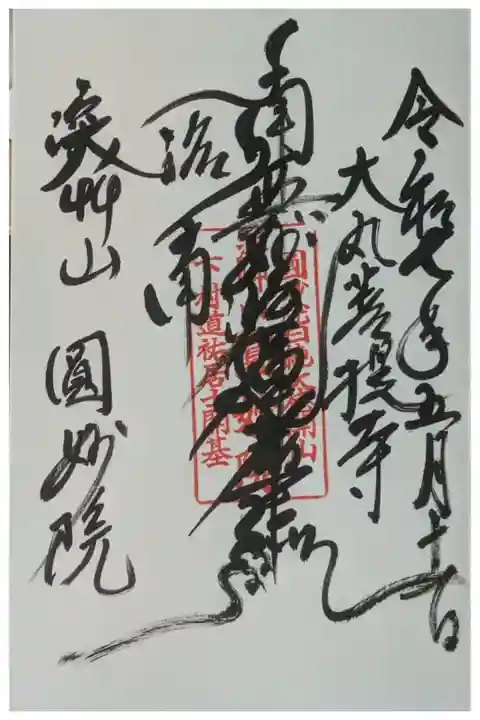 令和七年五月十一日
大丸菩提寺
南無妙法蓮華経
洛南
深艸山 圓妙院
村道祐居士開基